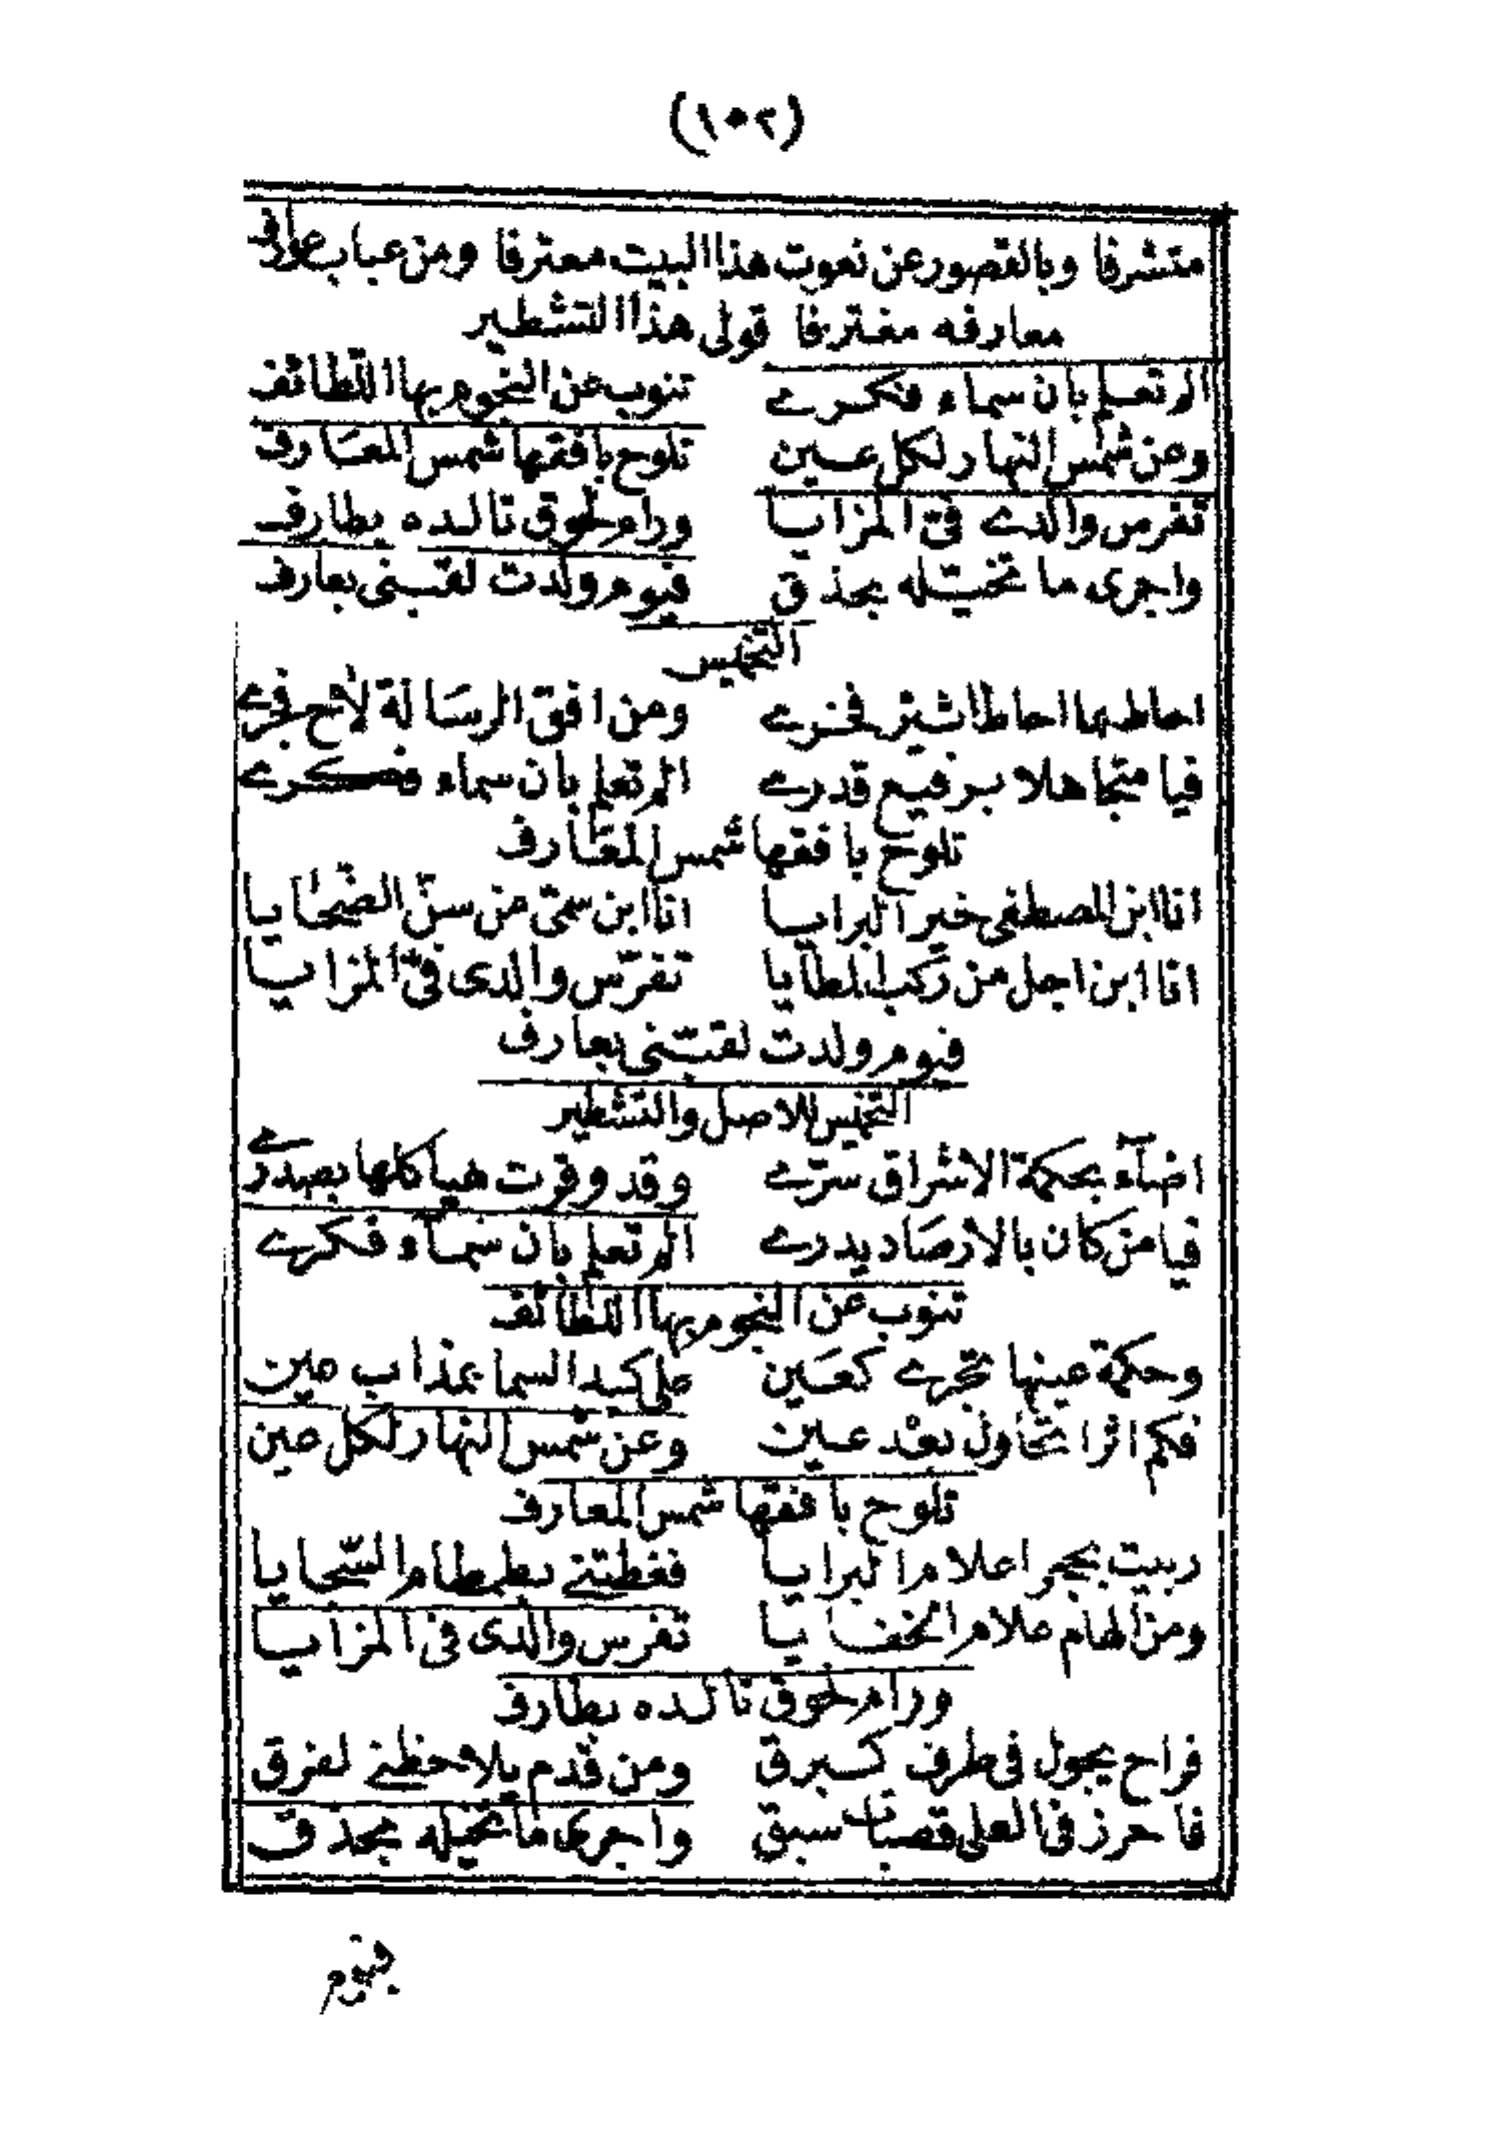 (١٥٢)
متشرفا وبالقصور عن نعوت هذا البيت معترفا ومن عباب عوارف
معارفه مغترفا قولى هذا التشطير
الم تعلم بان سماء فكرے تنوب عن النجوم بها اللطائف
وعن شمس النهار لكل عين تلوح بافقها شمس المعارف
تفرس والدے فى المزايا ورام لحوق تالده بطارف
واجرى ما تخيّله بحذق فيوم ولدت لقبنى بعارف
التخميس
احاط بما احاط اثير فخرے ومن افق الرسالة لاح فجرے
فيا متجاهلا برفيع قدرے الم تعلم بان سماء فكرے
تلوح بافقها شمس المعارف
انا ابن المصطفى خير البرايا انا ابن سمىّ من سنّ الضحايا
انا ابن اجل من ركب المطايا تفرّس والدى فىّ المزايا
فيوم ولدت لقبّنى بعارف
التخميس للاصل والتشطير
اضآء بحكمة الاشراق سرّے وقد وقرت هياكلها بصدرے
فيا من كان بالارصاد يدرے الم تعلم بان سمآء فكرے
تنوب عن النجوم بها اللطائف
وحكمة عينها تجرے كعين على كبد السما بمذاب عين
فكم اثرا تحاول بعد عين وعن شمس النهار لكل عين
تلوح بافقها شمس المعارف
ربيت بحجر اعلام البرايا فغطتنے بطمطام السّجايا
ومن الهام علام الخفايا تفرس والدى فى المزايا
ورام لحوق تالده بطارف
فراح يجول فى طرف كبرق ومن قدم يلاحظنے لفرق
فاحرز فى العلى قصبات سبق واجرى ما تخيله بحذق
فيوم